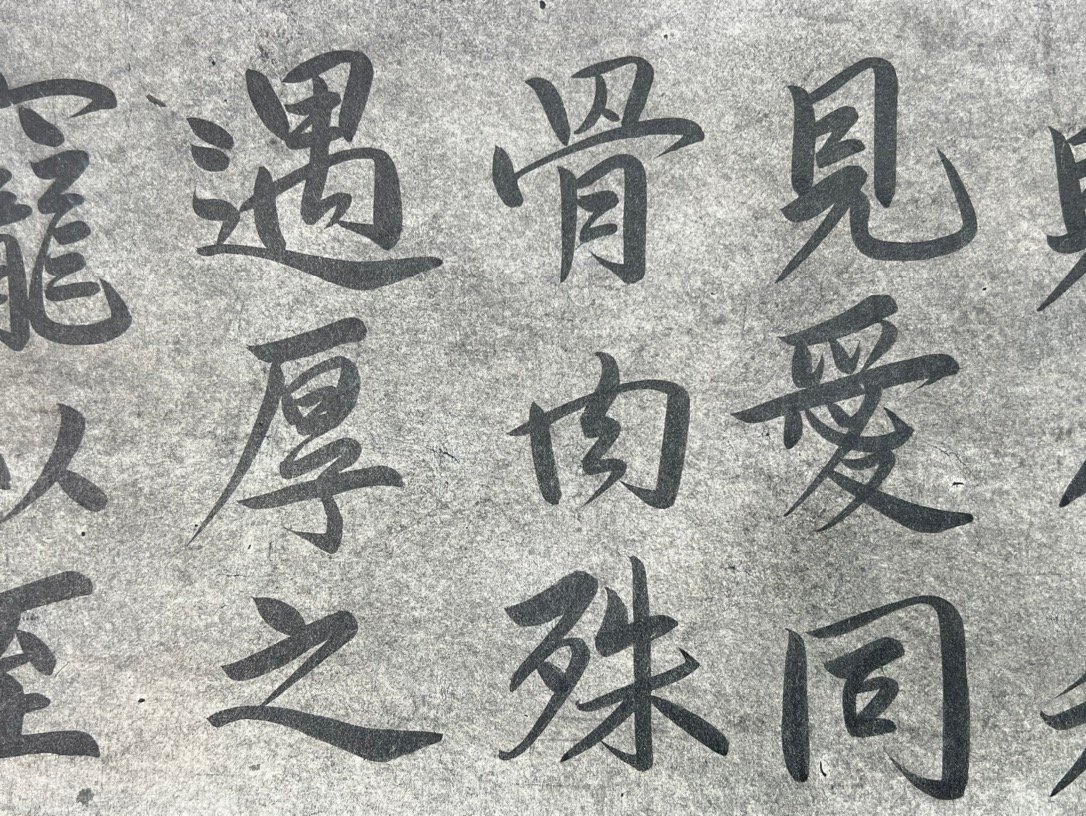 見愛同
骨肉殊
遇厚之
寵以至